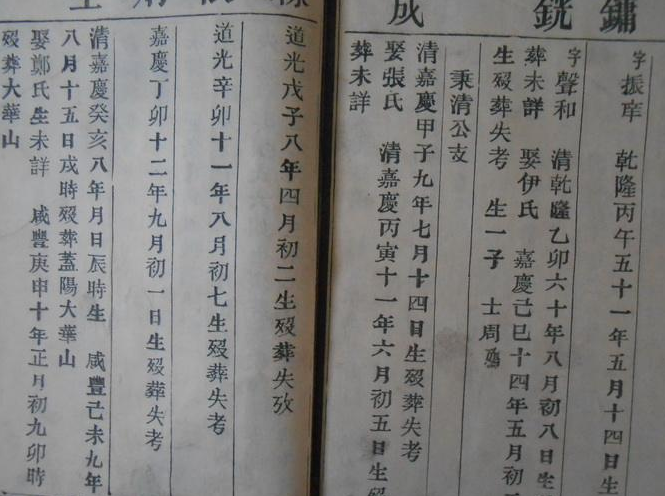 字振庠 乾隆丙午五十一年五月十四日生
銑
字聲和 清乾隆乙卯六十年八月初八日生
葬未詳 娶伊氏 嘉慶己巳十四年五月初
生殁葬失考 生一子 士周
秉清公支
成
清嘉慶甲子九年七月十四日生殁葬失考
娶張氏 清嘉慶丙寅十一年六月初五日生殁
葬未詳
道光戊子八年四月初二生殁葬失攷
道光辛卯十一年八月初七生殁葬失考
嘉慶丁卯十二年九月初一日生殁葬失考
清嘉慶癸亥八年月日辰時生 咸豐己未九年
八月十五日戌時殁葬蓋陽大華山
娶鄭氏生未詳 咸豐庚申十年正月初九卯時
殁葬大華山